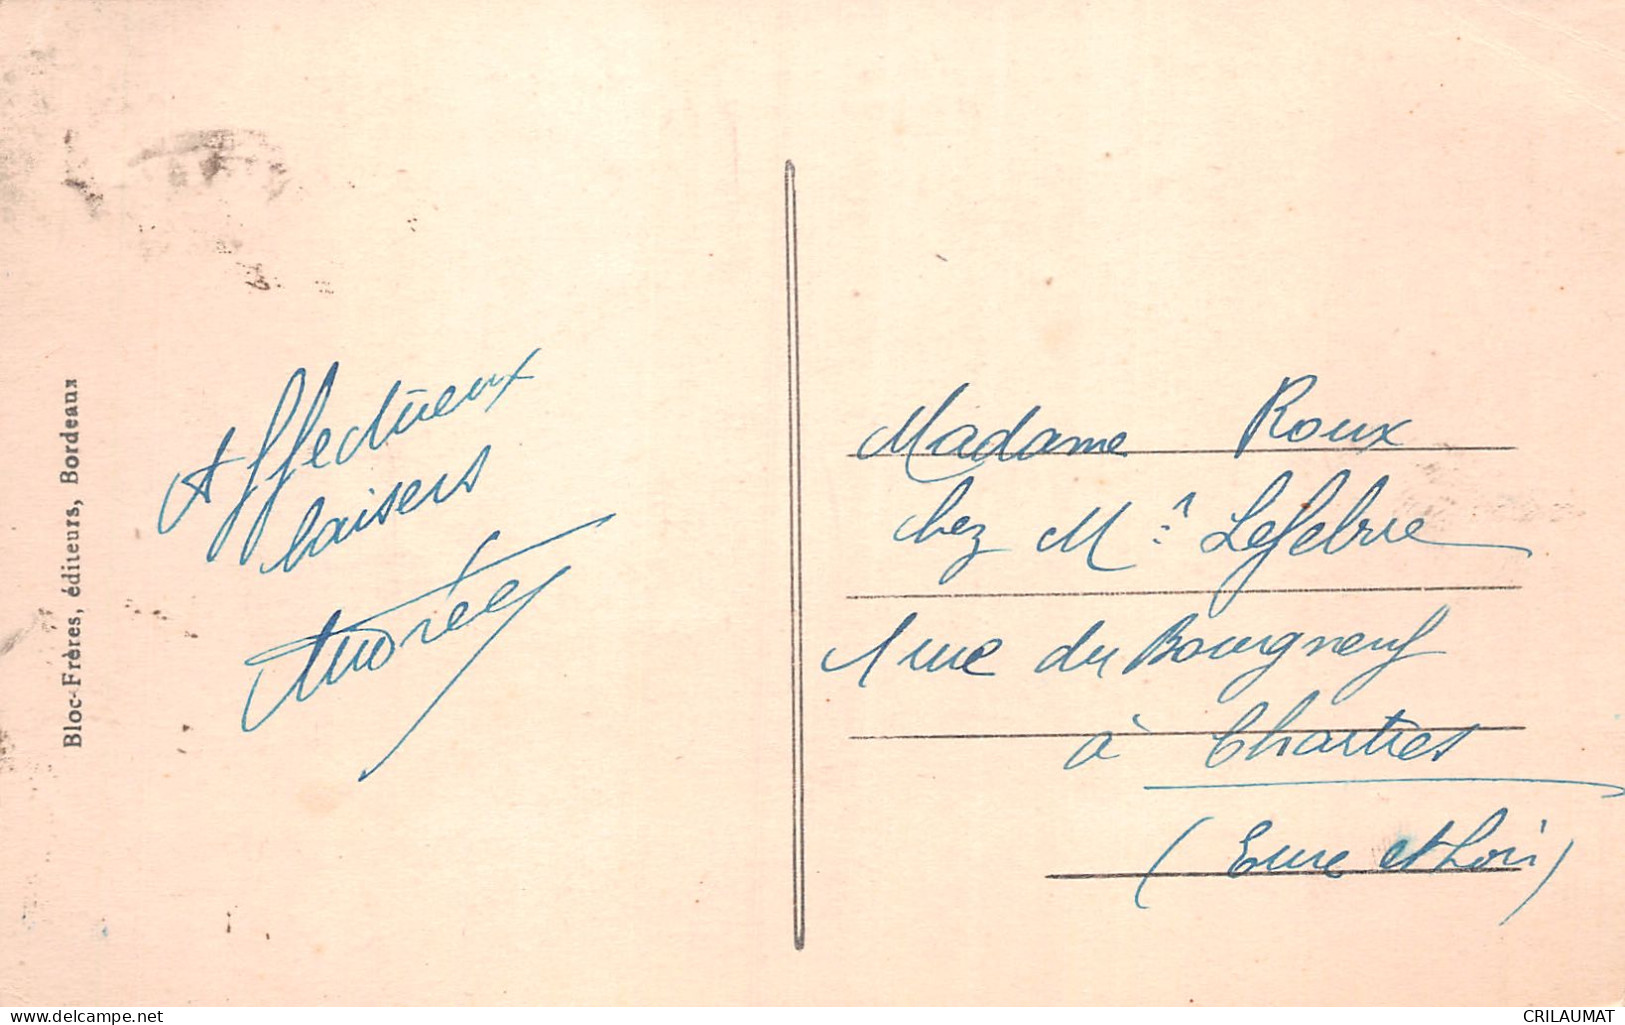 Bloc-Frères, éditeurs, Bordeaux
Affectueux
baisers
Andrée
Madame Roux
chez Mr Lefebvre
1 rue du Bourgneuf
à Chartres
(Eure et Loir)
www.delcampe.net
CRILAUMAT